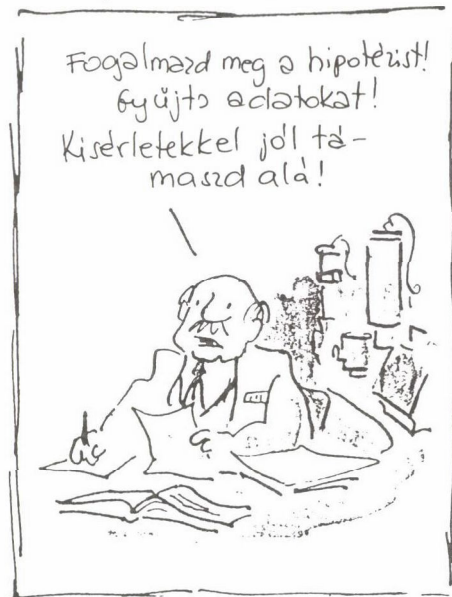 Fogalmazd meg a hipotézist!
Gyűjts adatokat!
Kisérletekkel jól tá-
maszd alá!